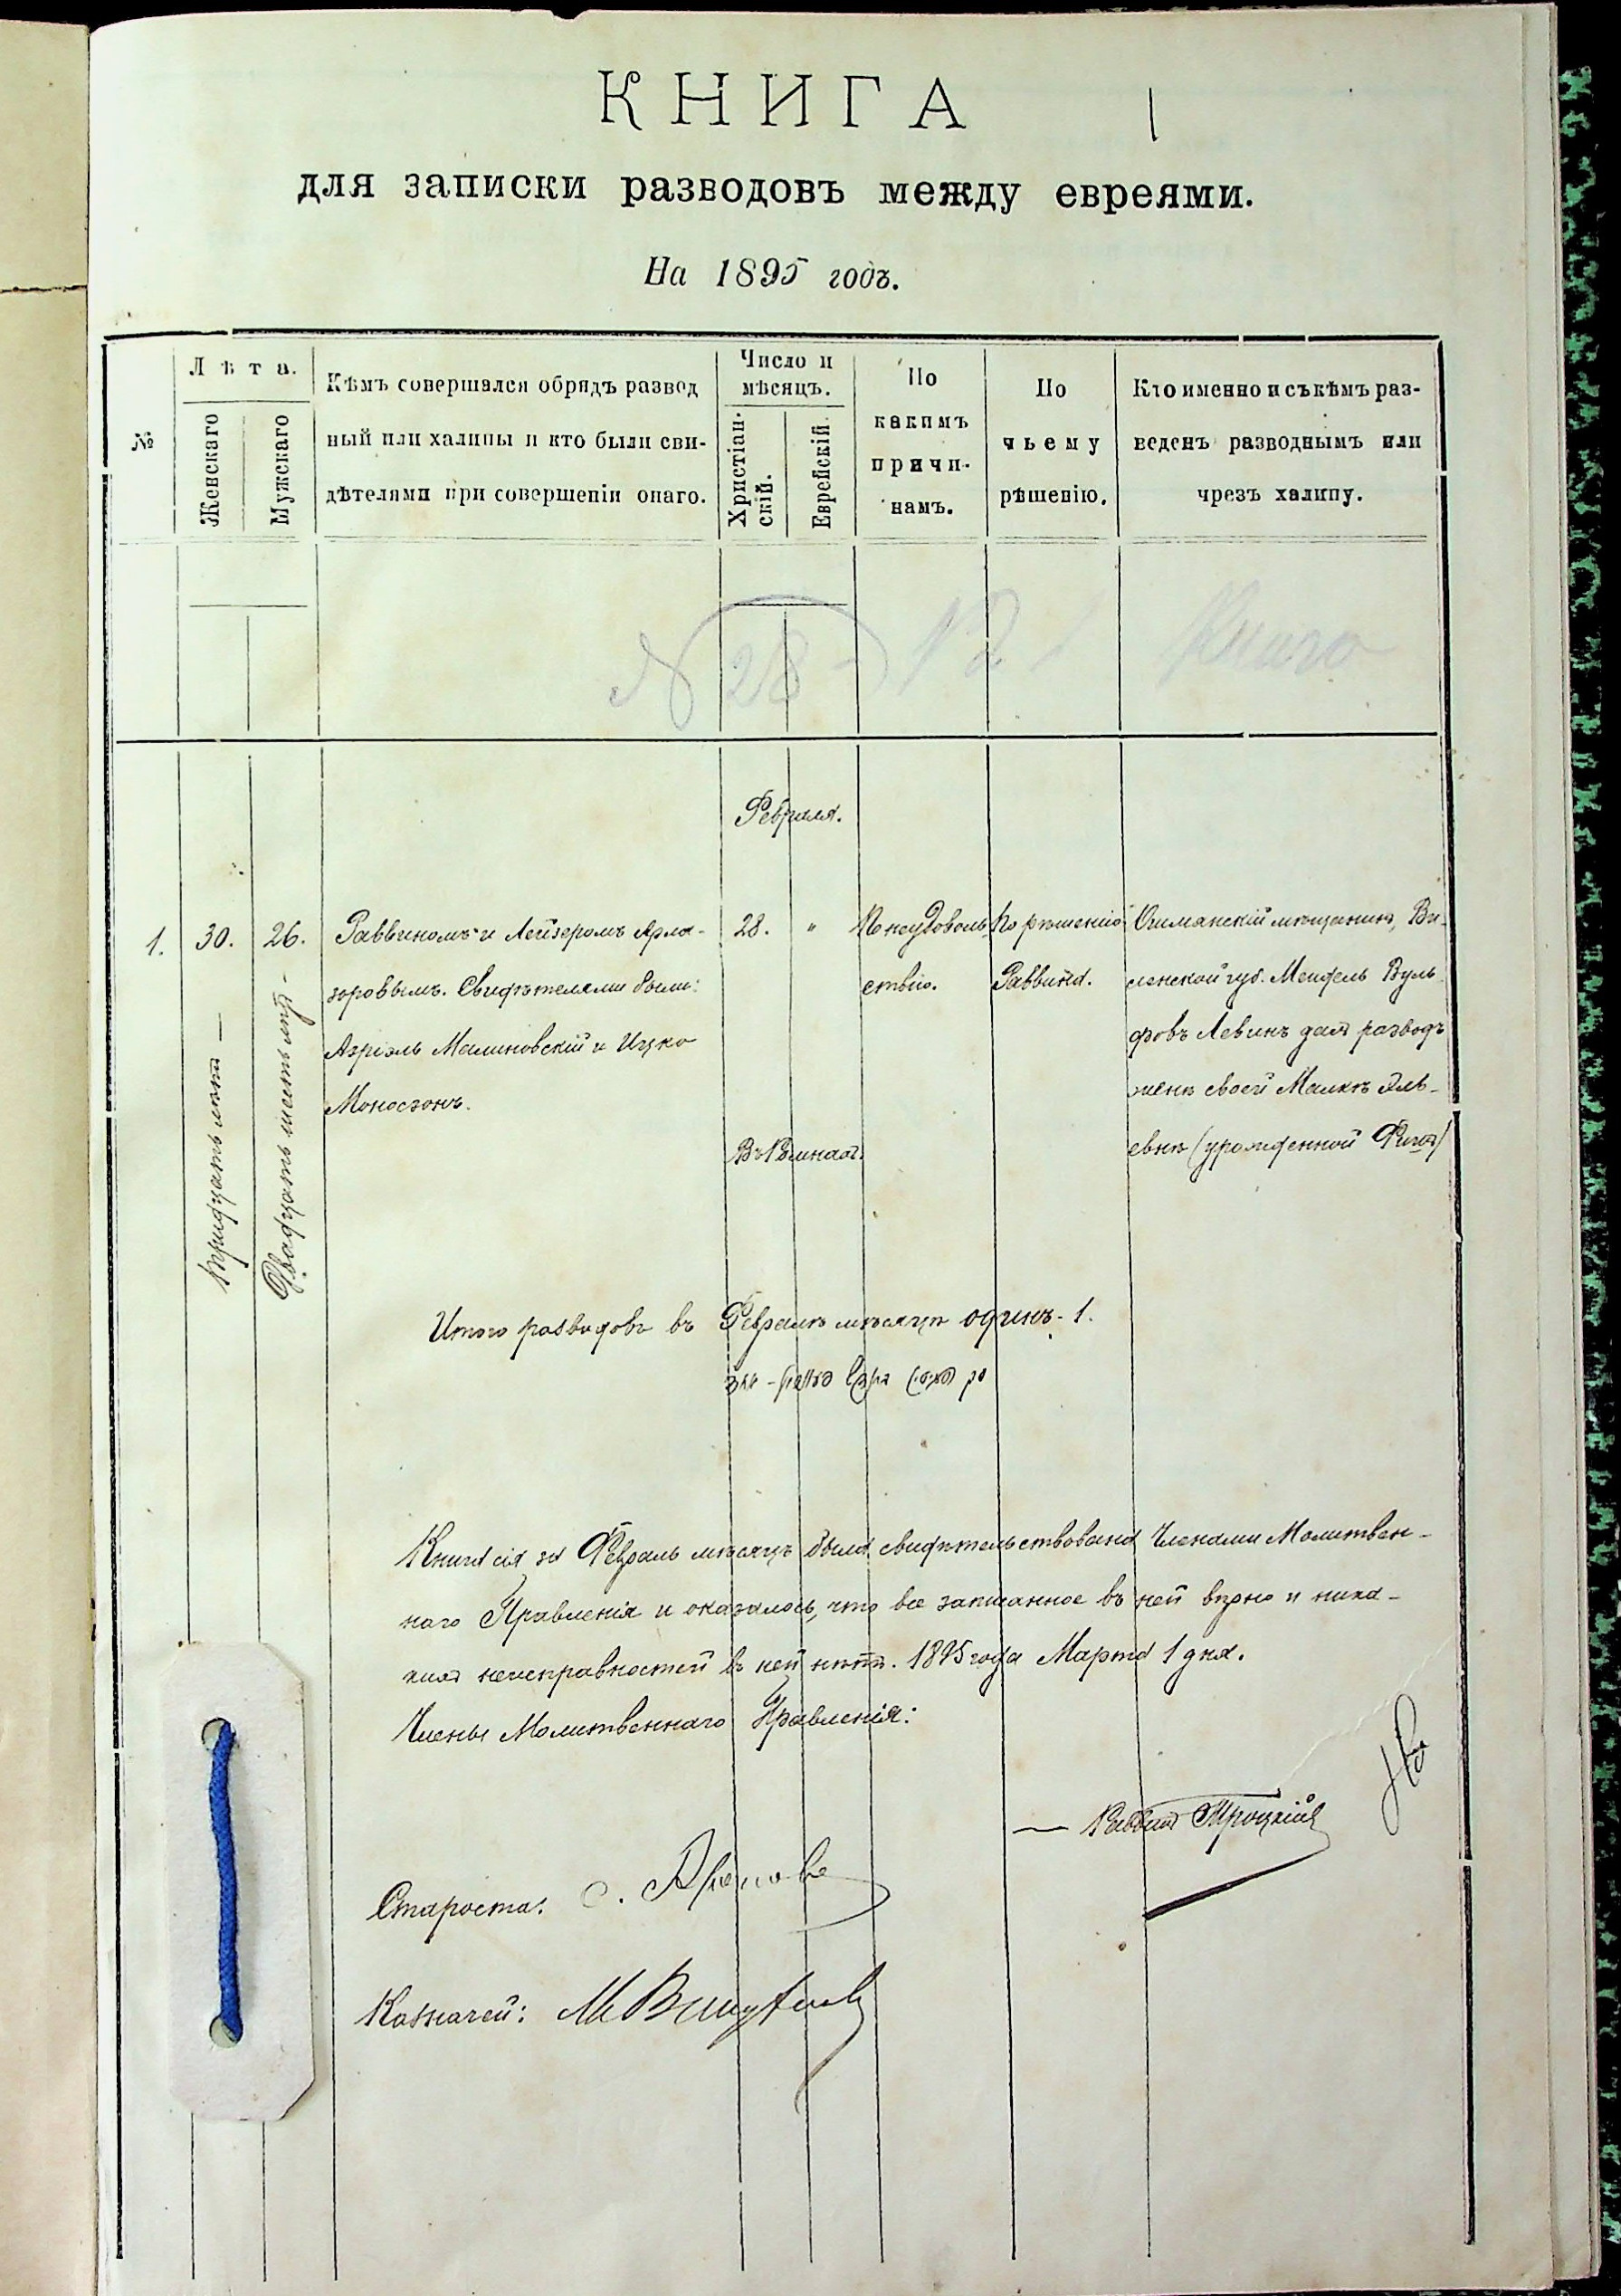 КНИГА
1
для записки разводовъ между евреями.
На 1895 годъ.
№
Лѣта.
Женскаго
Мужскаго
Кѣмъ совершался обрядъ развод
ный или халицы и кто были сви-
дѣтелями при совершеніи онаго.
Число и
мѣсяцъ.
Христіан-
скій.
Еврейскій.
По
какимъ
причи-
намъ.
По
чьему
рѣшенію.
Кто именно и съ кѣмъ раз-
веденъ разводнымъ или
чрезъ халицу.
N 28 - Книга
Февраля.
1.
30.
Тридцать лѣтъ —
26.
Двадцать шесть лѣтъ -
Раввиномъ и Лейзеромъ Арла-
зоровымъ. Свидѣтелями были:
Азріэль Малиновскій и Ицко
Моносзонъ.
28.
"
По неудоволь
ствію.
По рѣшенію
Раввина.
Ошмянскій мѣщанинъ, Ви-
ленской губ. Мендель Вуль
фовъ Левинъ далъ разводъ
женѣ своей Малкѣ Эль-
евнѣ (урожденной
Итого разводовъ въ Февралѣ мѣсяцѣ одинъ - 1.
Книга сія за Февраль мѣсяцъ была свидѣтельствована Членами Молитвен-
наго Правленія и оказалось, что все записанное въ ней вѣрно и ника-
кихъ неисправностей въ ней нѣтъ. 1895 года Марта 1 дня.
Члены Молитвеннаго Правленія:
— Раввинъ Троцкій
Староста:
Казначей: